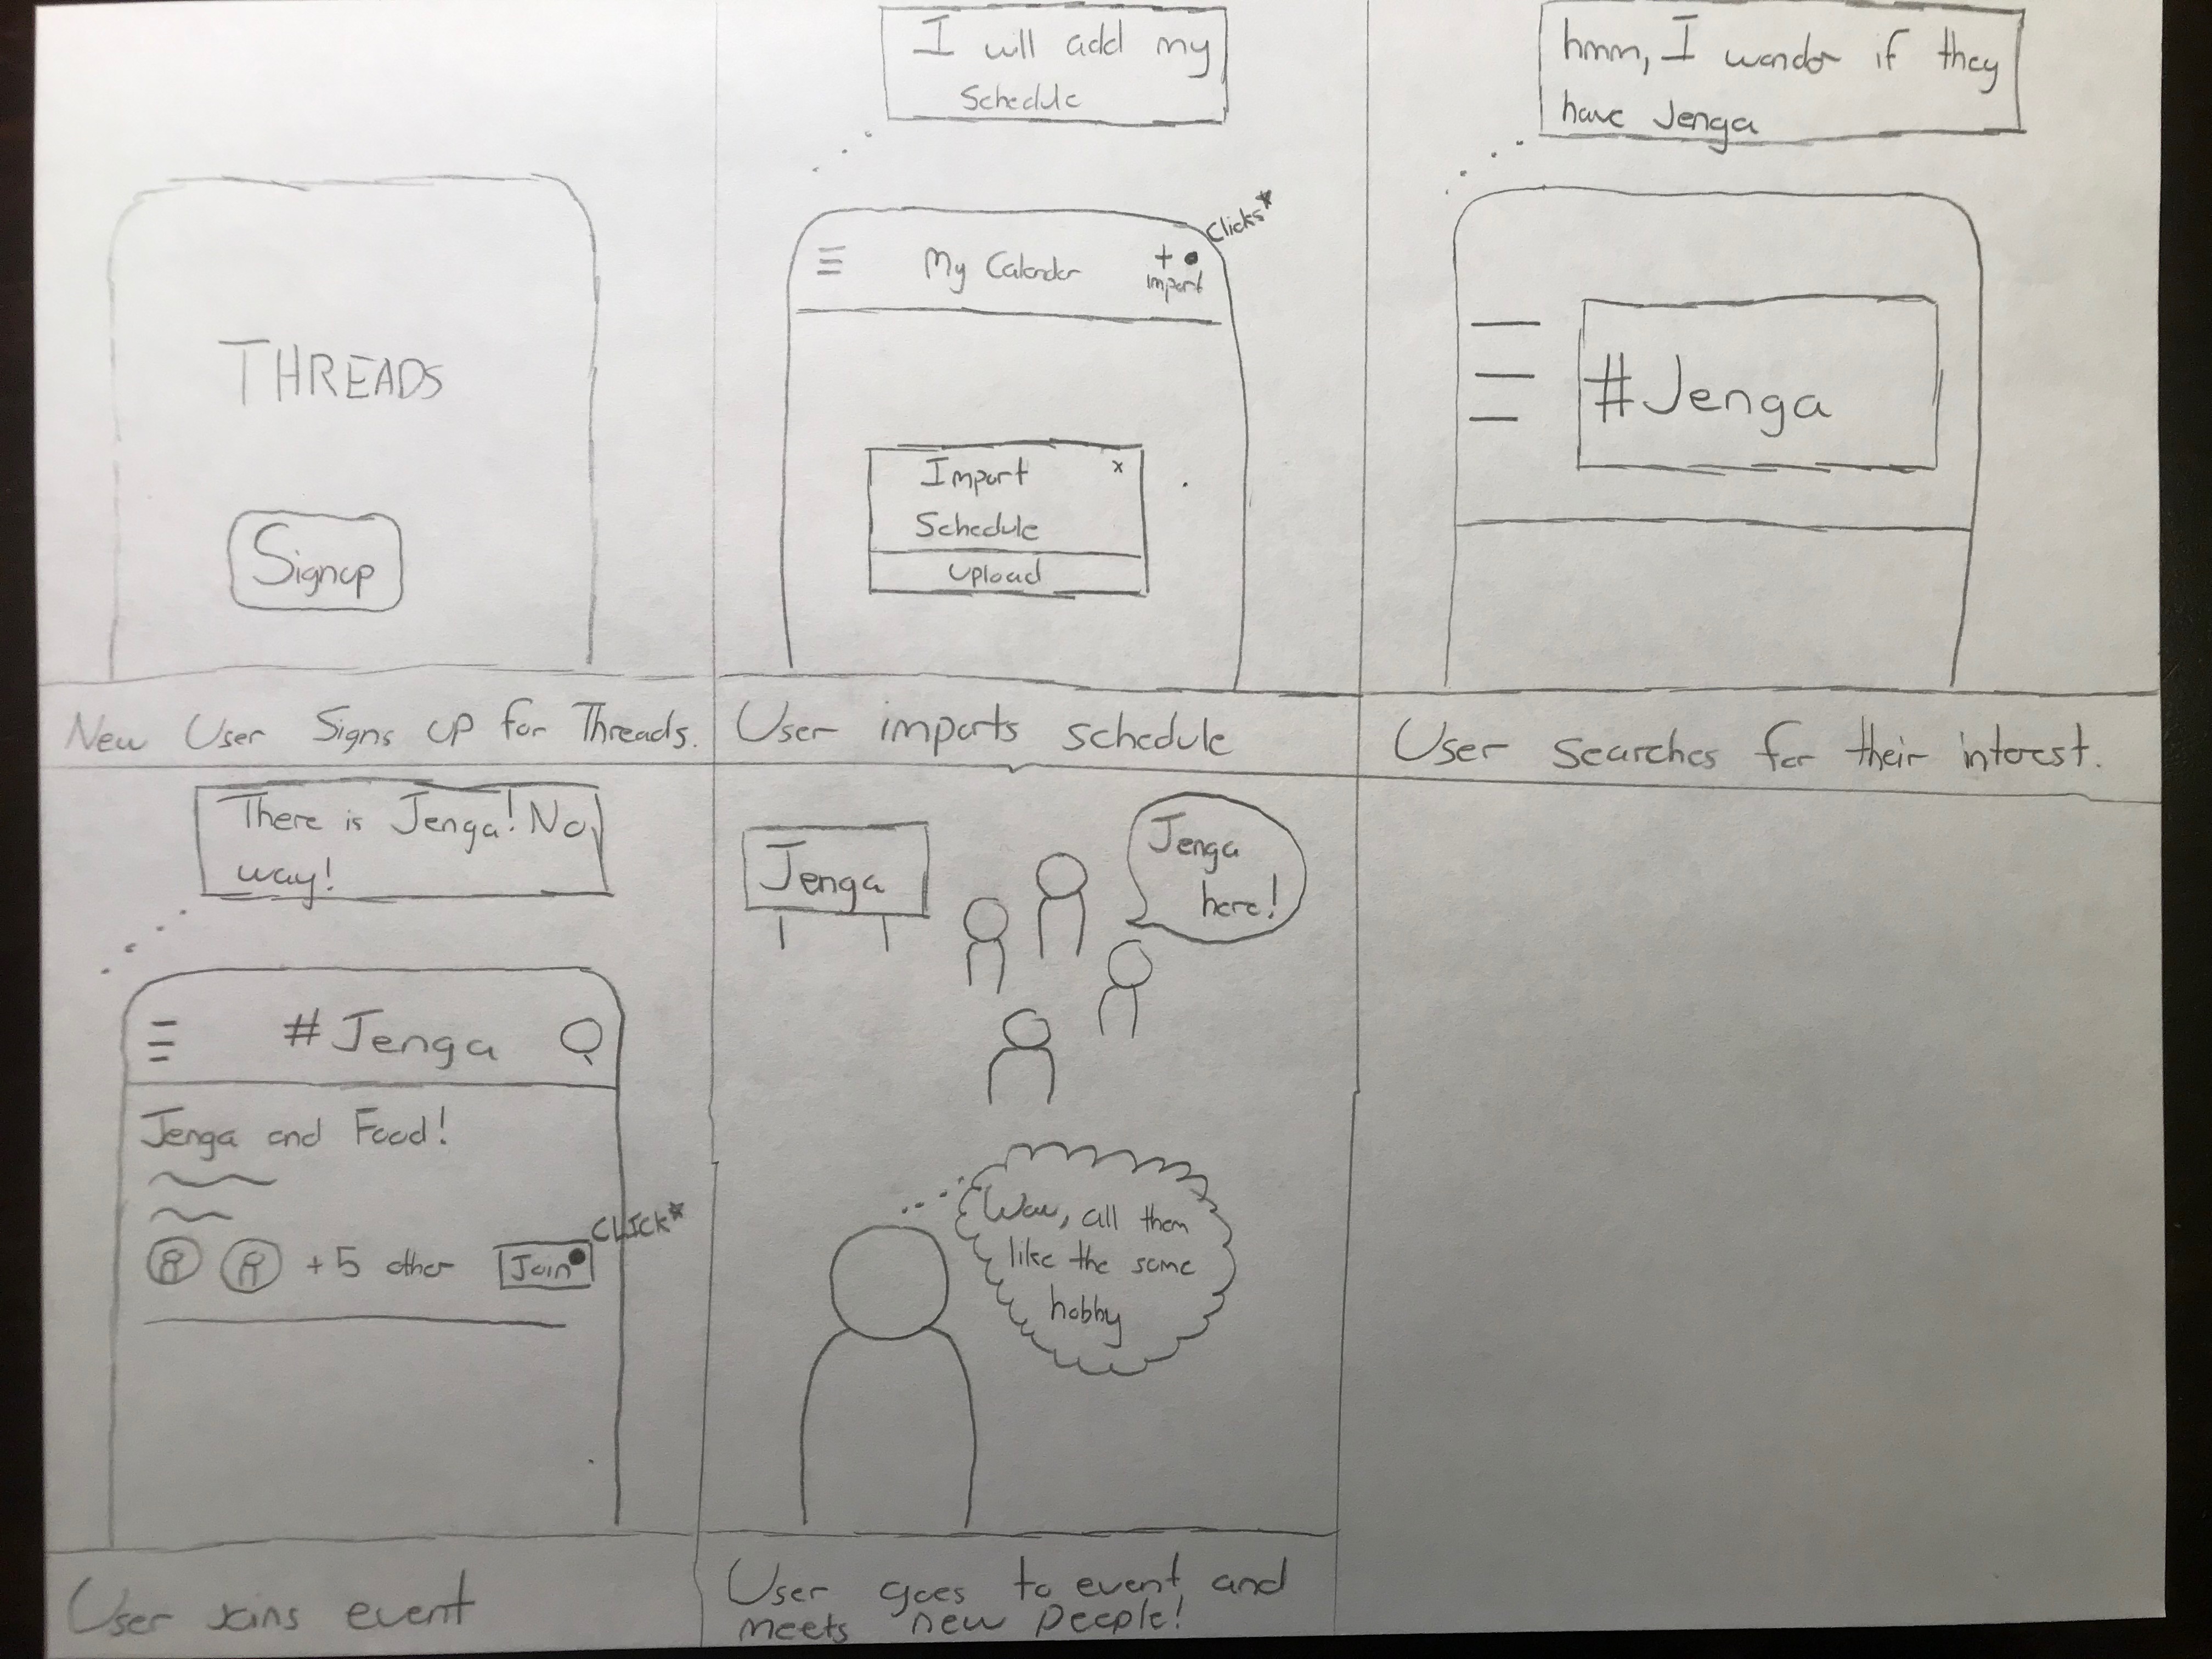 THREADS
Signup
New User Signs up for Threads.
I will add my
Schedule
Clicks*
My Calendar
+
import
Import x
Schedule
upload
User imports schedule
hmm, I wonder if they
have Jenga
#Jenga
User searches for their interest.
There is Jenga! No
way!
# Jenga
Jenga and Food!
+5 other
Join
Click*
User joins event
Jenga
Jenga
here!
Wow, all them
like the same
hobby
User goes to event and
meets new people!